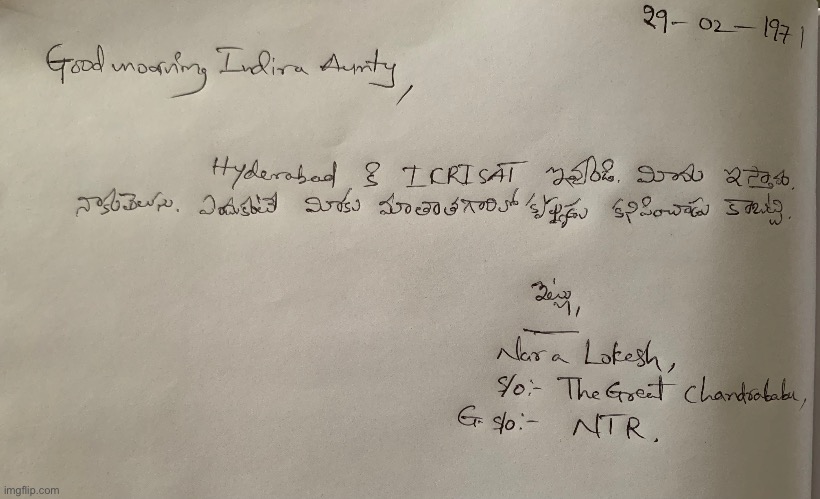 29-02-1971
Good moorning Indira Aunty,
Hyderabad కి ICRISAT ఇవ్వండి. మీరు ఇస్తారు.
నాకుతెలుసు. ఎందుకంటే మీకు మాతాతగారిలో కృష్ణుడు కనిపించాడు కాబట్టి.
ఇట్లు,
Nara Lokesh,
S/o:- The Great Chandrababu,
G. S/o:- NTR.
imgflip.com